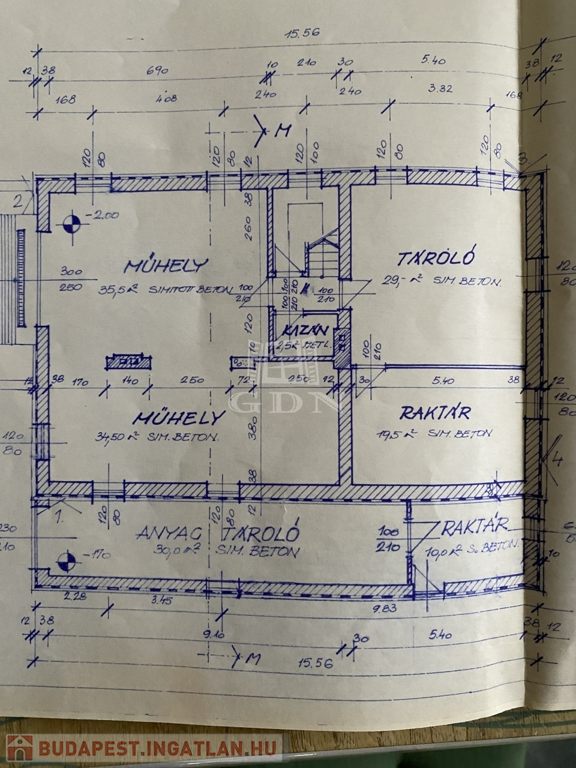 15.56
12 38 690 10 210 30 5.40 38 12
168 4.08 240 240 3.32 168
M
120 80 120 80 12 120 100 120 80 120 80 3.
2 38
-2.00 260
MŰHELY TÁROLÓ
300 35,5 m² SIMITOTT BETON 100 29,- m² SIM. BETON.
260 210 100 210 120
100 210 80
KAZÁN
2,5 m² METL.
120 10 100 210
38 170 140 250 72 250 12 30 5.40 38 12
GDN
MŰHELY RAKTÁR
120 34,50 m² SIM. BETON 380 19,5 m² SIM. BETON 120
80 80
38 4
1. 120 80 180 12
230 ANYAG TÁROLÓ 100 RAKTÁR
210 30,0 m² SIM. BETON 210 10,0 m² S. BETON.
-1.70
2.28 3.45 9.83
12 38 9.10 30 5.40 38 12
M
15.56
BUDAPEST.INGATLAN.HU